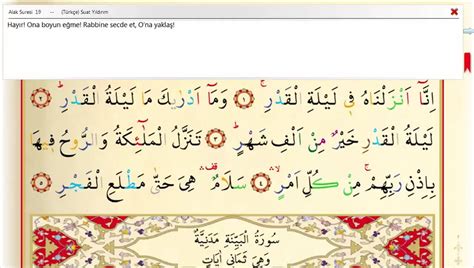 Alak Suresi 19 -- (Türkçe) Suat Yıldırım
Hayır! Ona boyun eğme! Rabbine secde et, O'na yaklaş!
اِنَّٓا اَنْزَلْنَاهُ ف۪ي لَيْلَةِ الْقَدْرِۚ ﴿١﴾ وَمَٓا اَدْرٰيكَ مَا لَيْلَةُ الْقَدْرِۜ ﴿٢﴾
لَيْلَةُ الْقَدْرِ خَيْرٌ مِنْ اَلْفِ شَهْرٍۜ ﴿٣﴾ تَنَزَّلُ الْمَلٰٓئِكَةُ وَالرُّوحُ ف۪يهَا
بِاِذْنِ رَبِّهِمْۚ مِنْ كُلِّ اَمْرٍۙۛ ﴿٤﴾ سَلَامٌ۠ۛ قف هِيَ حَتّٰى مَطْلَعِ الْفَجْرِ ﴿٥﴾
سُورَةُ الْبَيِّنَةِ مَدَنِيَّةٌ
وَهِيَ ثَمَانِي اٰيَاتٍ